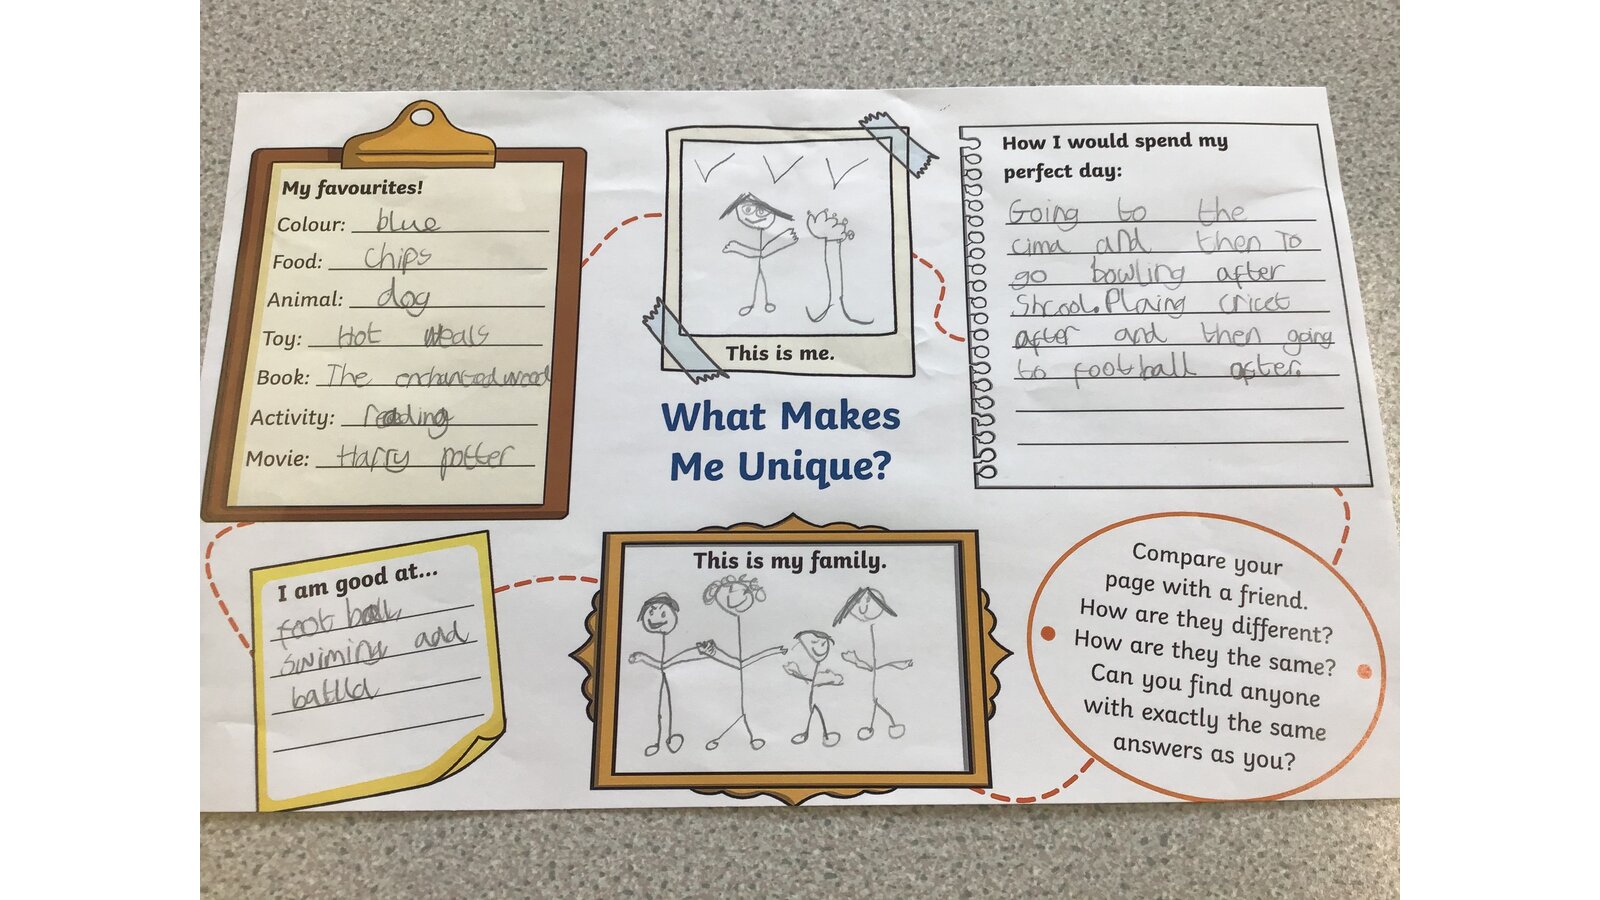 My favourites!
Colour: blue
Food: chips
Animal: dog
Toy: Hot weals
Book: The enchanted wood
Activity: reading
Movie: Harry potter
This is me.
How I would spend my
perfect day:
Going to the
cima and then To
go bowling after
Shcool. Plaing cricet
after and then going
to foot ball after.
What Makes
Me Unique?
I am good at...
foot ball
swiming and
This is my family.
Compare your
page with a friend.
How are they different?
How are they the same?
Can you find anyone
with exactly the same
answers as you?